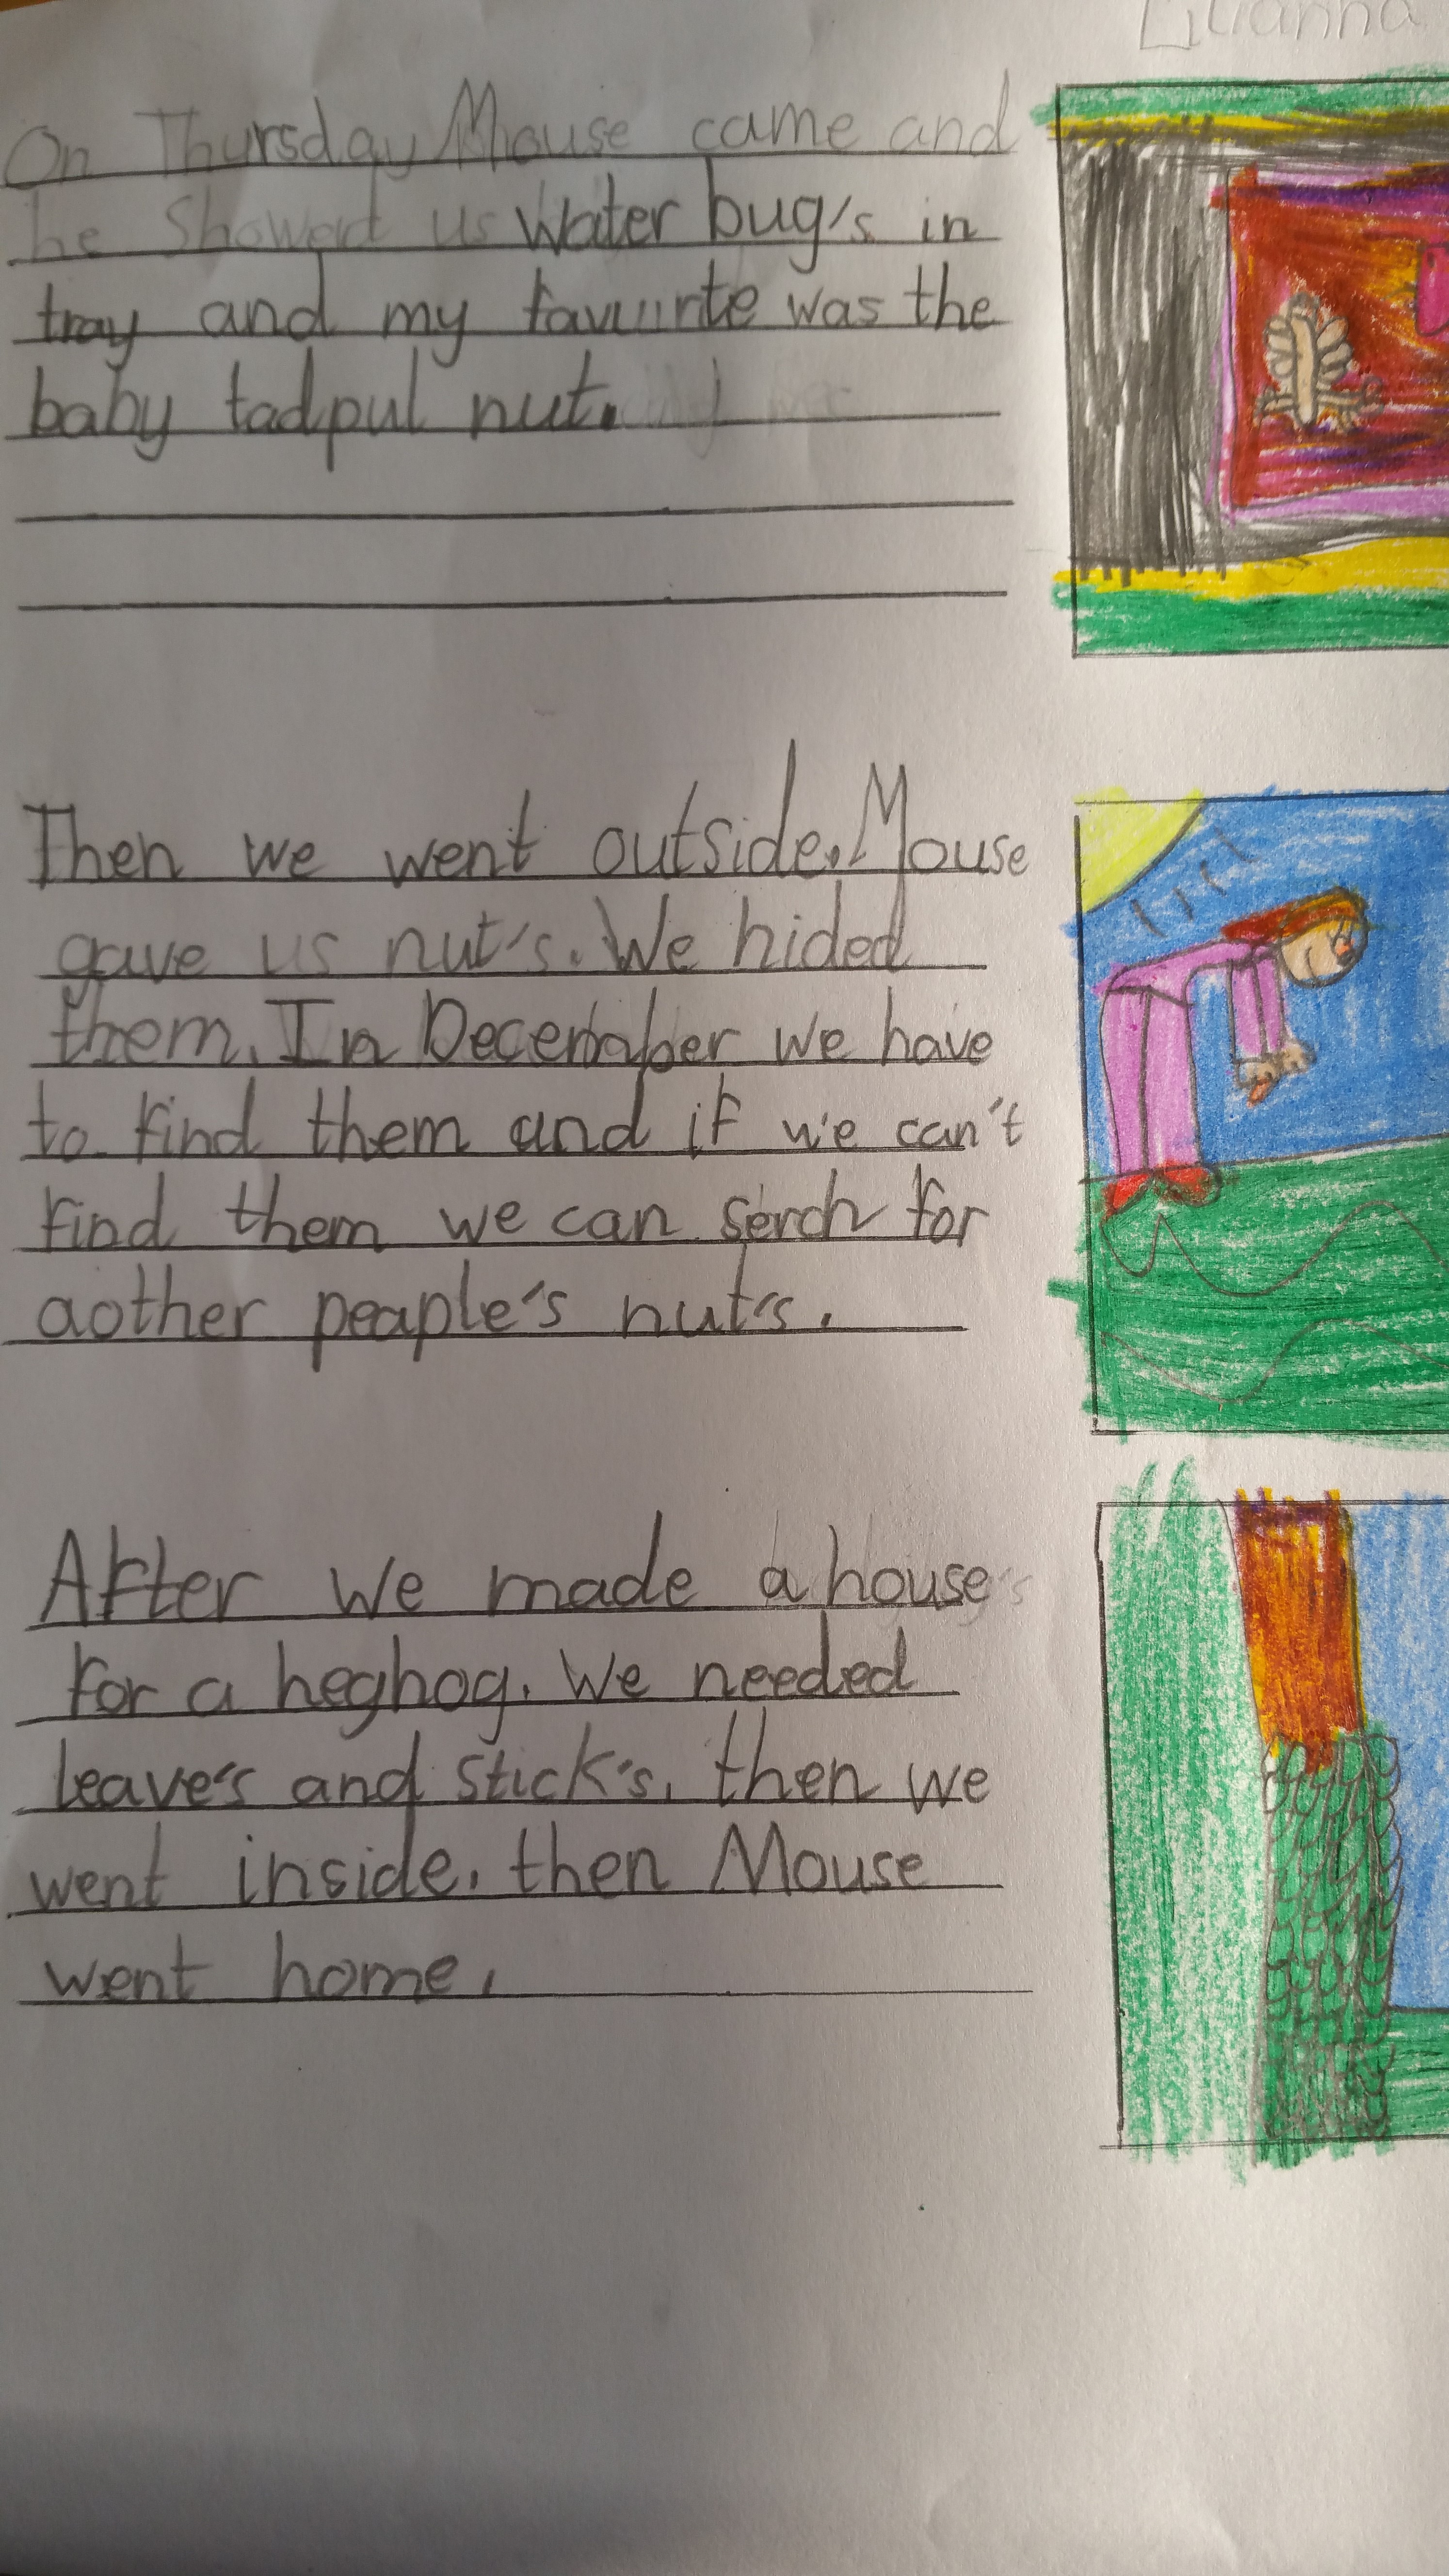 Lilianna
On Thursday Mouse came and
he Showed us Water bug's in
tray and my favuirte was the
baby tadpul nut.
Then we went outside. Mouse
gave us nut's. We hided
them. In December we have
to find them and if we can't
find them we can serch for
aother peaple's nut's.
After we made a house
for a heghog. We needed
leave's and stick's. then we
went inside. then Mouse
went home.